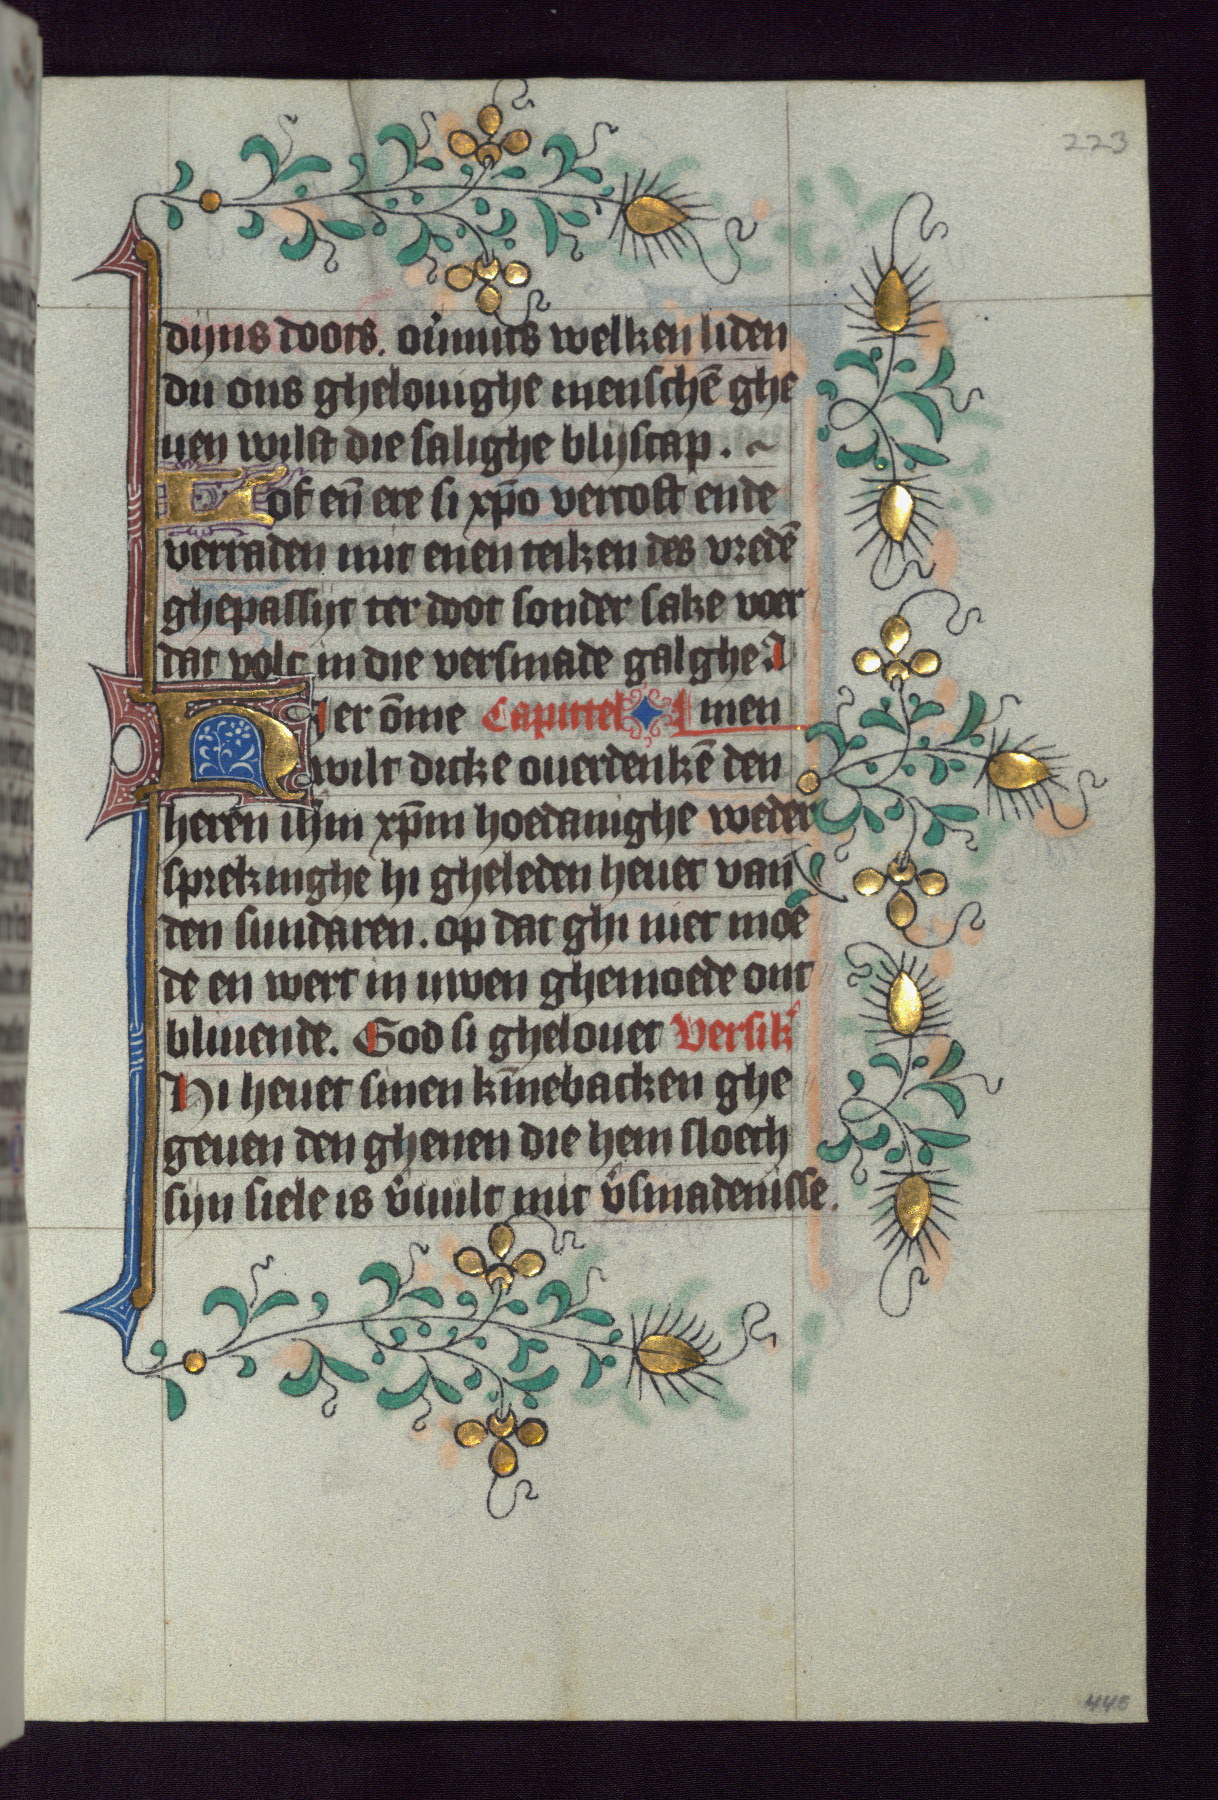 223
dijns doots. ou̓mits welken liden
du ons ghelouighe menschē ghe
uen wilst die salighe blijscap.
Lof eñ ere si xp̄o vercoft ende
verraden mit enen teiken des vredē
ghepassijt ter doot sonder sake voer
dat volc in die versmade galghe. A
Hier ōme Capittel men
wilt dicke ouerdenkē den
heren ihm xp̄m hoedanighe weder
sprekinghe hi gheleden heuet van
den sundaren. op dat ghi niet moe
de en wert in uwen ghemoede ont
bliuende. God si ghelouet Versik̓
Hi heuet sinen kīnebacken ghe
geuen den ghenen die hem sloech
sijn siele is v̓uult mit v̓smadenisse.
445